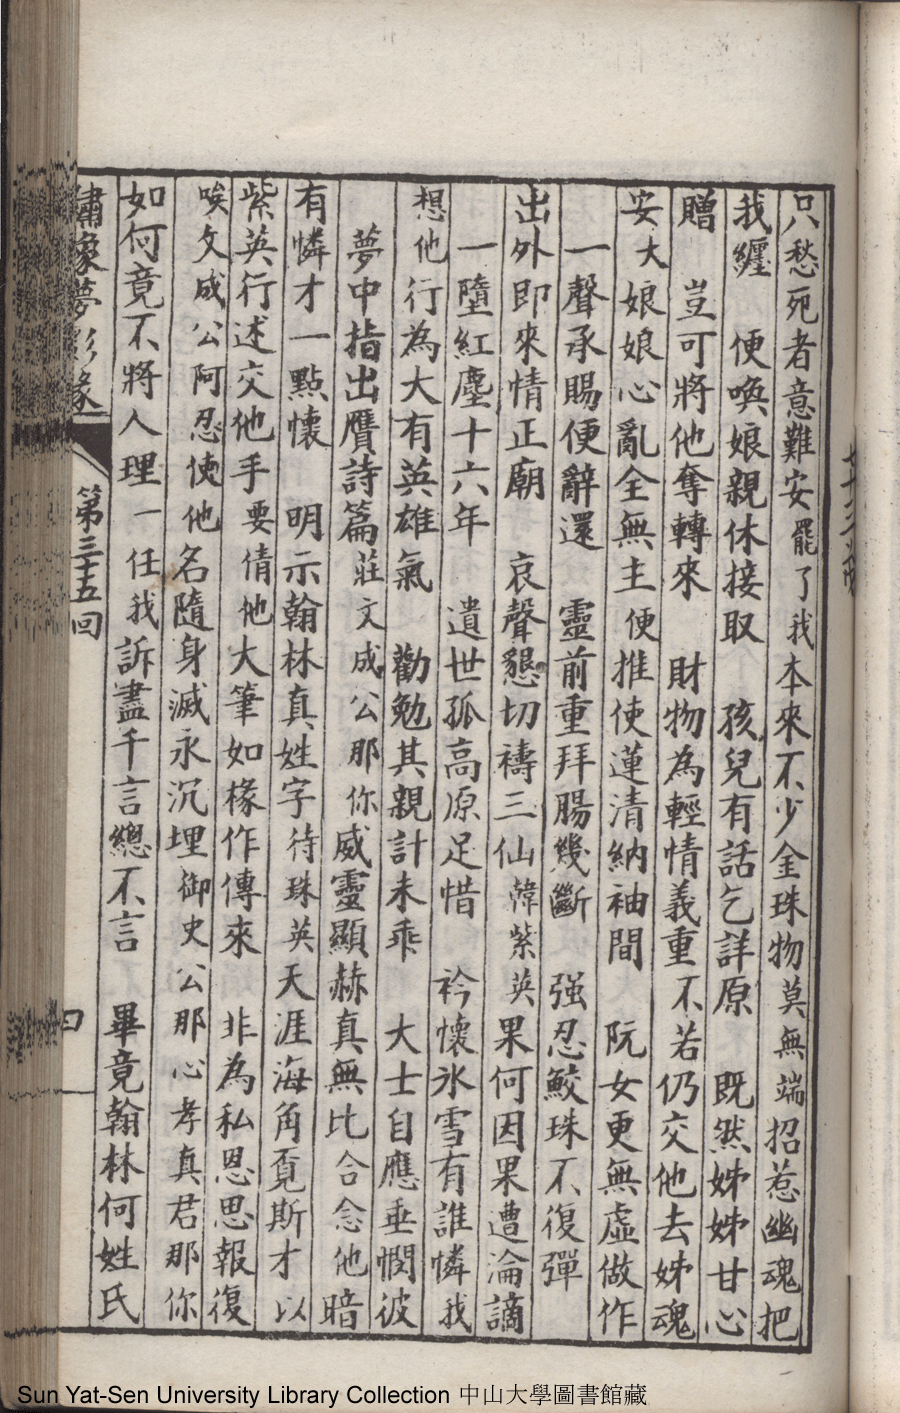 只愁死者意難安罷了我本來不少金珠物莫無端招惹幽魂把
我纏　便喚娘親休接取　孩兒有話乞詳原　既然姊姊甘心
贈　豈可將他奪轉來　財物為輕情義重不若仍交他去姊魂
安大娘娘心亂全無主便推使蓮清納袖間　阮女更無虛做作
一聲承賜便辭還　靈前重拜腸幾斷　强忍鮫珠不復彈
出外即來情正廟　哀聲懇切禱三仙韓紫英果何因果遭淪謫
一墮紅塵十六年　遺世孤高原足惜　衿懷氷雪有誰憐我
想他行為大有英雄氣　勸勉其親計未乖　大士自應垂憫彼
夢中指出贗詩篇莊文成公那你威靈顯赫真無比合念他暗
有憐才一點懷　明示翰林真姓字待珠英天涯海角覔斯才以
紫英行述交他手要倩他大筆如椽作傳來　非為私恩思報復
唉文成公阿忍使他名隨身滅永沉埋御史公那心孝真君那你
如何竟不將人理一任我訴盡千言總不言　畢竟翰林何姓氏
繡像夢影緣　第三十五回
Sun Yat-Sen University Library Collection 中山大學圖書館藏